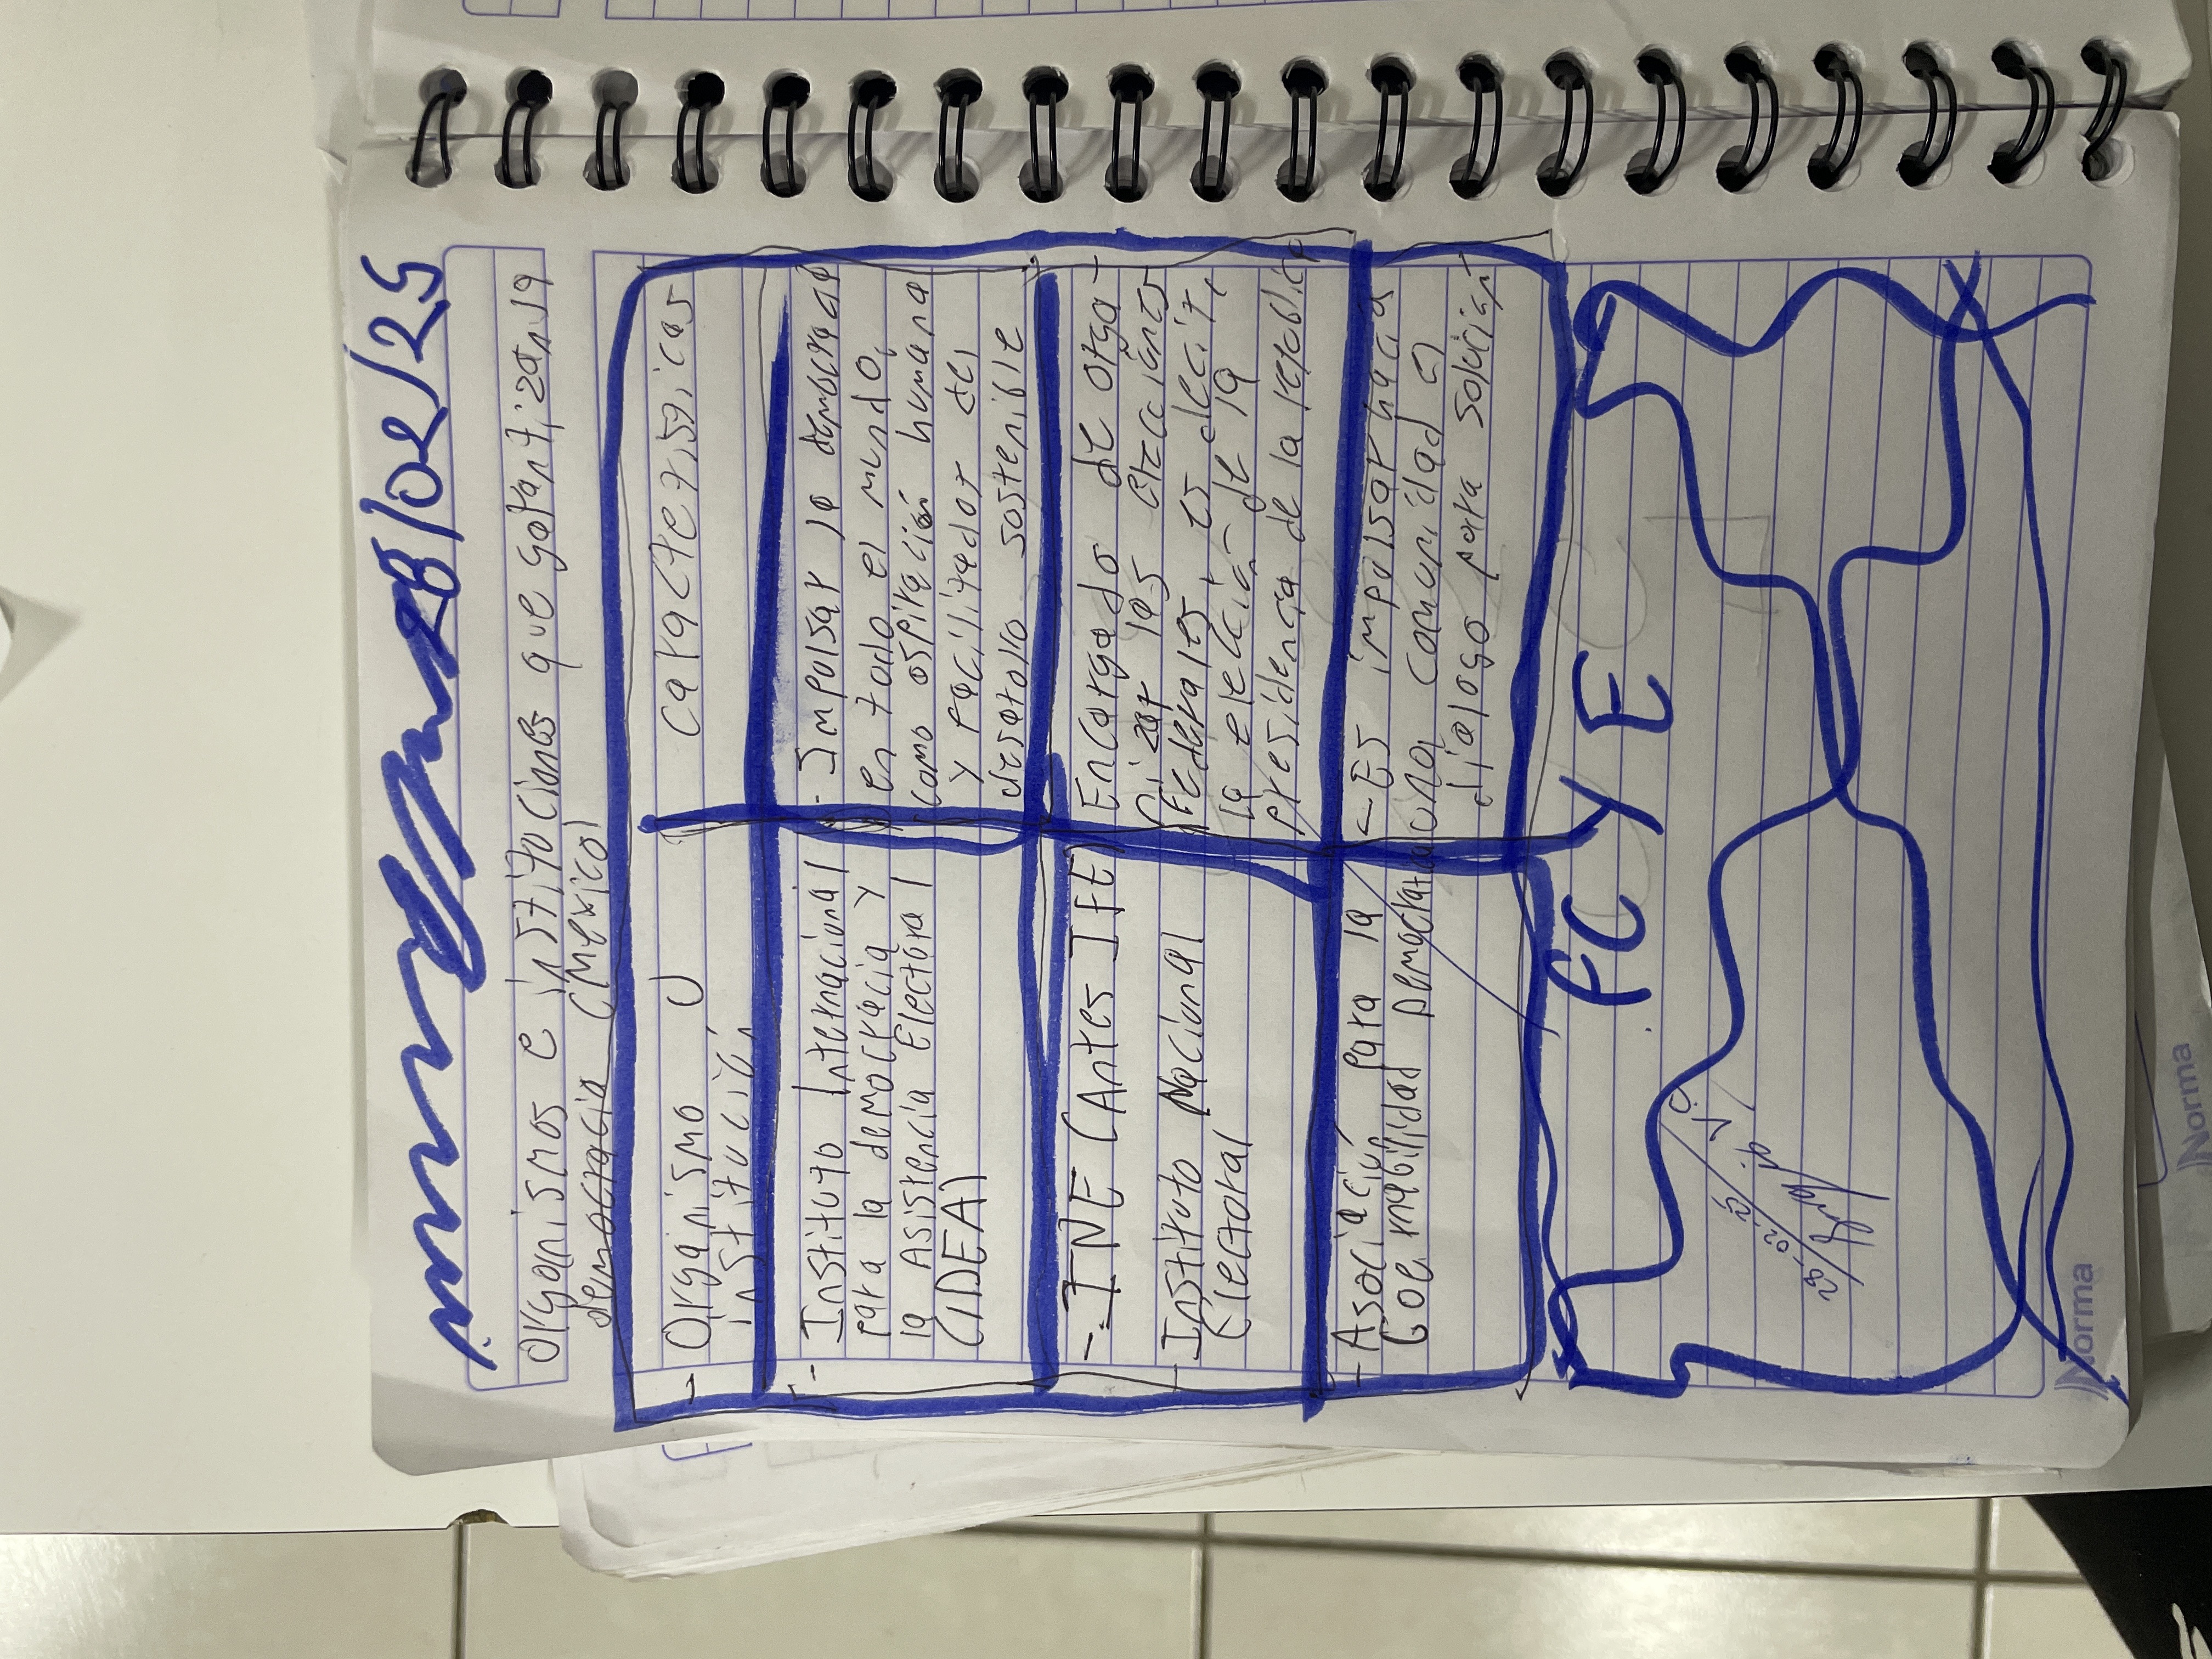 28/02/25
Organismos e instituciones que garantizan la
democracia (Mexico)
- Organismo U
institución
caractetisgicas
- Instituto Internacional
para la democracia y
la Asistencia Electoral
(IDEA)
- Impulsar la democracia
en todo el mundo,
como ospiración humana
y facilitador del
desarollo sostenible
- INE (Antes IFE)
- Instituto Nacional
Electoral
Encargado de orga-
nizar las elecciones
Federales es decir
la elección de la
presidencia de la republica
- Asociación para la
Gobernabilidad Democratica
- Es impulsar hacia
una comunidad
dialogo para solución
FC y E
28/02/25
Norma
Norma